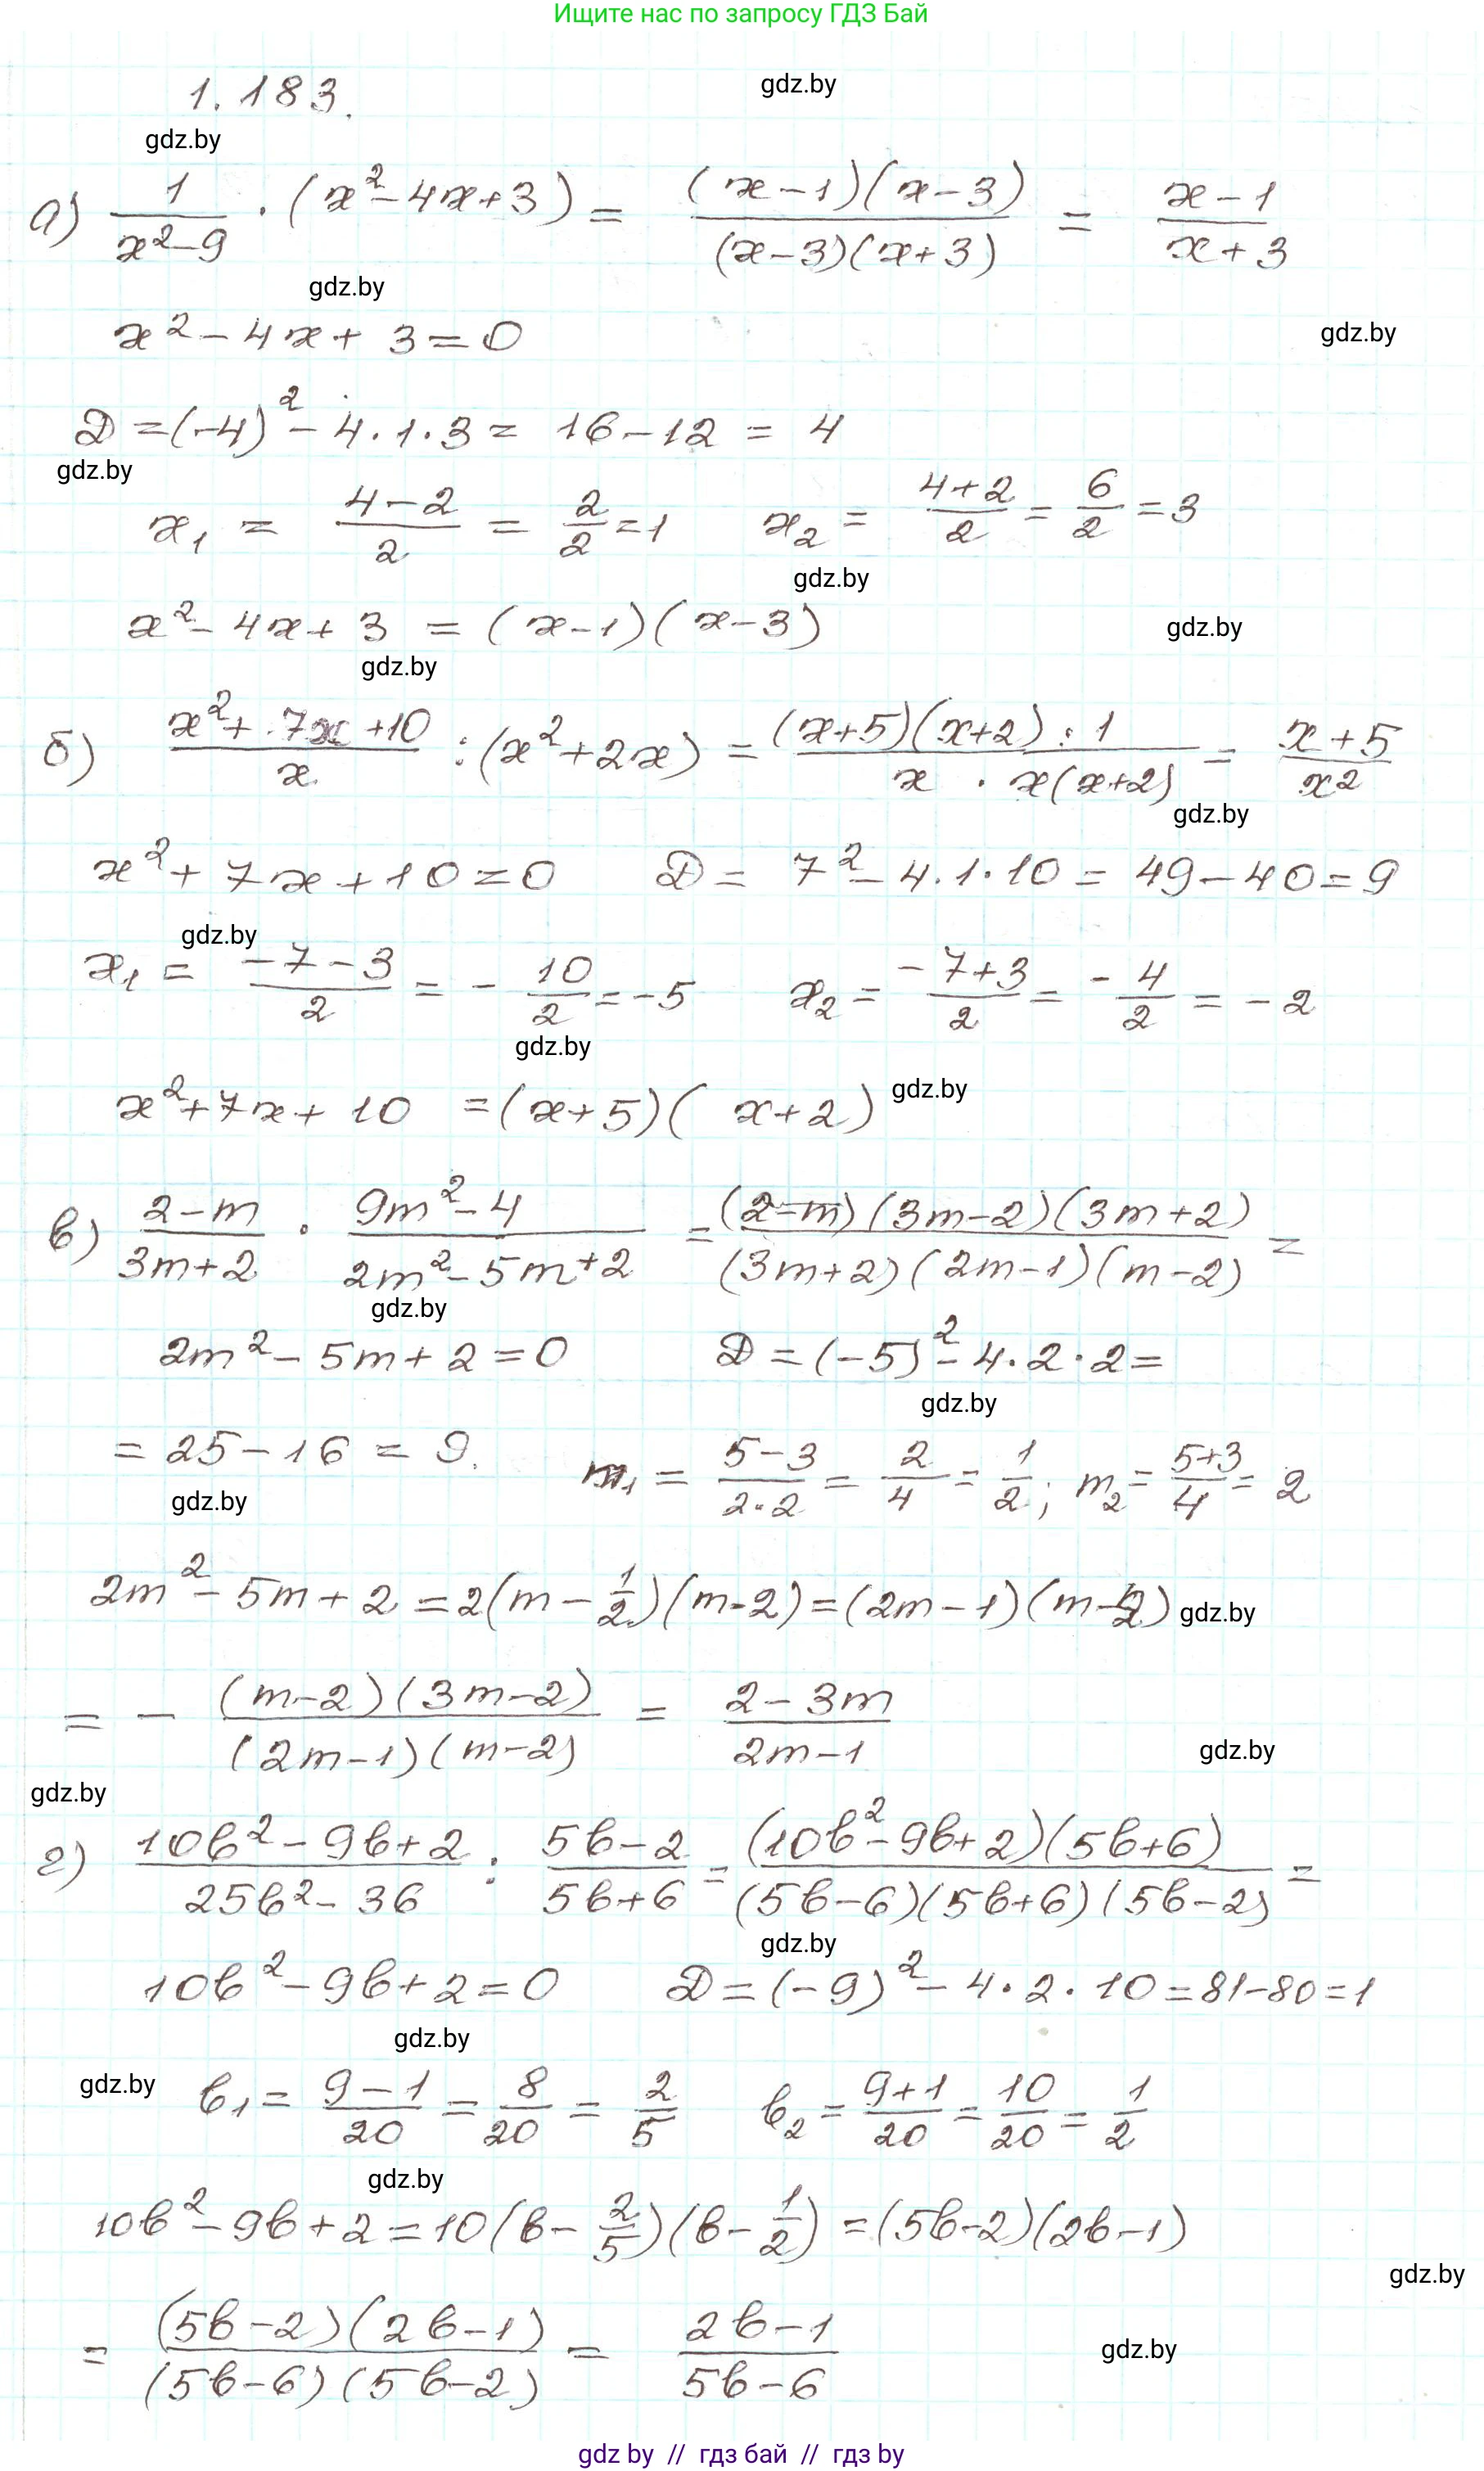 Ищите нас по запросу ГДЗ Бай
1.183.
gdz.by
gdz.by
а) 1/(x²-9) · (x²-4x+3) = (x-1)(x-3)/((x-3)(x+3)) = (x-1)/(x+3)
gdz.by
x²-4x+3=0
gdz.by
D=(-4)²-4·1·3=16-12=4
gdz.by
x₁ = (4-2)/2 = 2/2=1 x₂ = (4+2)/2 = 6/2 =3
gdz.by
x²-4x+3 = (x-1)(x-3)
gdz.by
gdz.by
б) (x²+7x+10)/x : (x²+2x) = (x+5)(x+2)·1/(x · x(x+2)) = (x+5)/x²
gdz.by
x²+7x+10=0 D= 7²-4·1·10= 49-40=9
gdz.by
x₁ = (-7-3)/2 = -10/2 = -5 x₂ = (-7+3)/2 = -4/2 = -2
gdz.by
x²+7x+10 =(x+5)(x+2)
gdz.by
в) (2-m)/(3m+2) · (9m²-4)/(2m²-5m+2) = (2-m)(3m-2)(3m+2)/((3m+2)(2m-1)(m-2)) =
gdz.by
2m²-5m+2=0 D=(-5)²-4·2·2=
gdz.by
= 25-16 = 9. m₁ = (5-3)/(2·2) = 2/4 = 1/2; m₂ = (5+3)/4 = 2
gdz.by
2m²-5m+2=2(m-1/2)(m-2)=(2m-1)(m-2)
gdz.by
= - (m-2)(3m-2)/((2m-1)(m-2)) = (2-3m)/(2m-1)
gdz.by
gdz.by
г) (10b²-9b+2)/(25b²-36) : (5b-2)/(5b+6) = (10b²-9b+2)(5b+6)/((5b-6)(5b+6)(5b-2)) =
gdz.by
10b²-9b+2=0 D=(-9)²-4·2·10=81-80=1
gdz.by
gdz.by
b₁ = (9-1)/20 = 8/20 = 2/5 b₂ = (9+1)/20 = 10/20 = 1/2
gdz.by
10b²-9b+2=10(b-2/5)(b-1/2) =(5b-2)(2b-1)
gdz.by
= (5b-2)(2b-1)/((5b-6)(5b-2)) = (2b-1)/(5b-6)
gdz.by
gdz by // гдз бай // гдз by